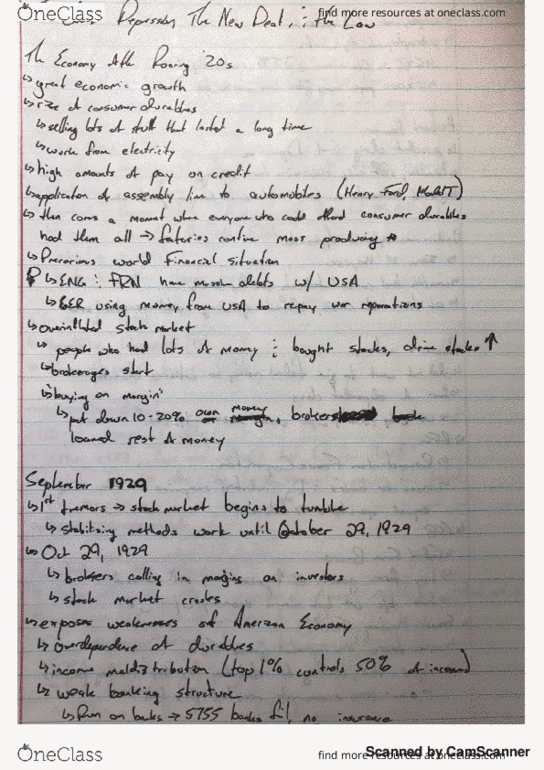 OneClass
find more resources at oneclass.com
Depression, The New Deal, & the Law
The Economy Atlh Roaring '20s
↳great economic growth
↳rise of consumer durables
↳selling lots of stuff that lasted a long time
↳work from electricity
↳high amounts of pay on credit
↳application of assembly line to automobiles (Henry Ford, Model T)
↳then comes a moment when everyone who could afford consumer durables
had them all → factories continue mass producing
↳Precarious world financial situation
↳ENG & FRN have massive debts w/ USA
↳GER using money from USA to repay war reparations
↳overinflated stock market
↳people who had lots of money & bought stocks, drive stocks ↑
↳brokerages start
↳"buying on margin"
↳put down 10-20% own money, brokers
loaned rest of money
September 1929
↳1st tremors → stock market begins to tumble
↳stabilizing methods work until October 29, 1929
↳Oct 29, 1929
↳brokers calling in margins on investors
↳stock market crashes
↳exposes weaknesses of American Economy
↳overdependence of durables
↳income maldistribution (top 1% controls 50% of income)
↳weak banking structure
↳Run on banks → 5755 banks fail, no insurance
OneClass
find more resources at oneclass.com
Scanned by CamScanner